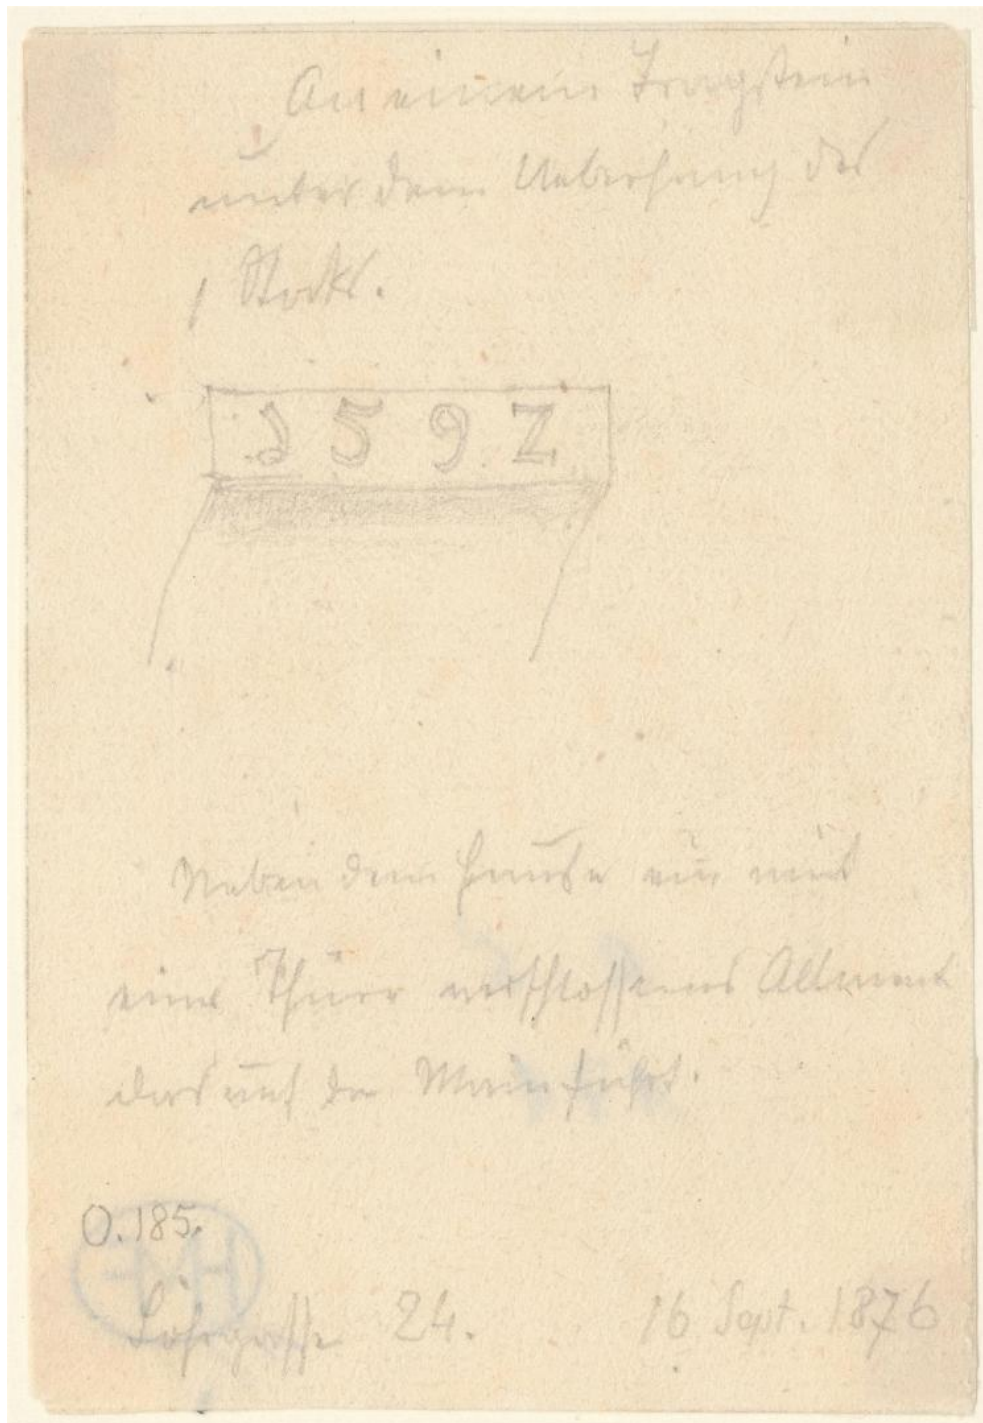 An einem Tragstein
unter dem Ueberhang des
1 Stocks.
1592
Neben dem Hause ein mit
einer Thüre verschlossenes Allment
das auf den Main führt.
O.185.
Löhrgasse 24. 16 Sept. 1876